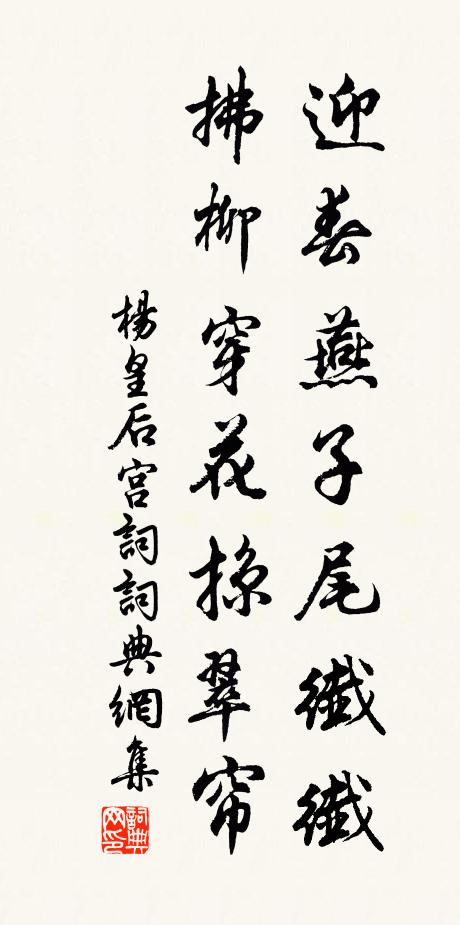 迎春燕子尾纖纖
拂柳穿花掠翠帘
楊皇后宫詞詞典網集
詞典
网印